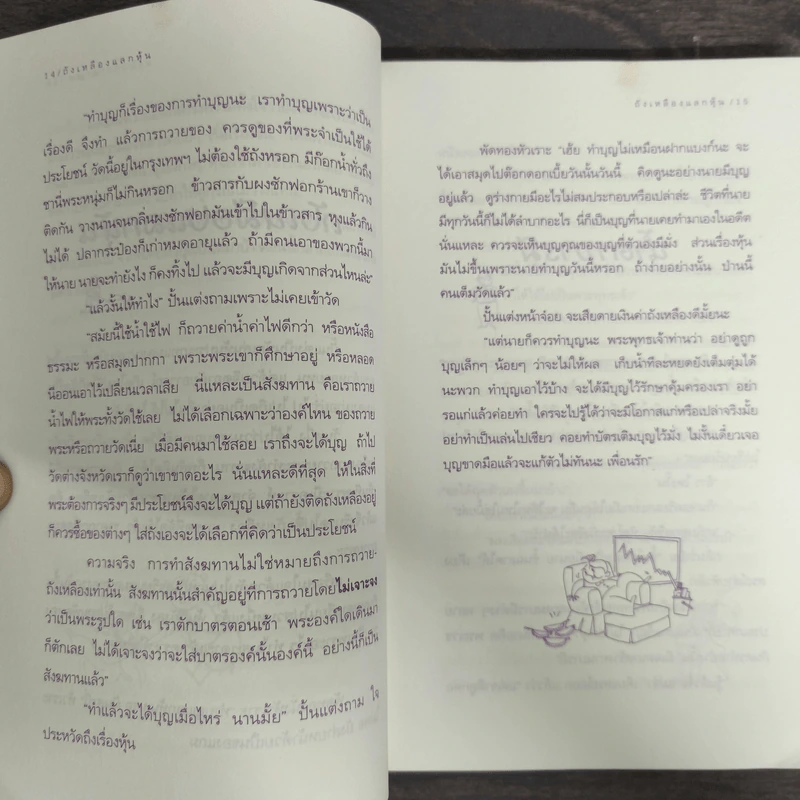 14/ถังเหลืองแลกหุ้น
"ทำบุญก็เรื่องของการทำบุญนะ เราทำบุญเพราะว่าเป็น
เรื่องดี จึงทำ แล้วการถวายของ ควรดูของที่พระจำเป็นใช้ได้
ประโยชน์ วัดนี้อยู่ในกรุงเทพฯ ไม่ต้องใช้ถังหรอก มีก๊อกน้ำทั่วถึง
ชานี่พระหนุ่มก็ไม่กินหรอก ข้าวสารกับผงซักฟอกร้านเขาก็วาง
ติดกัน วางนานจนกลิ่นผงซักฟอกมันเข้าไปในข้าวสาร หุงแล้วกิน
ไม่ได้ ปลากระป๋องก็เก่าหมดอายุแล้ว ถ้ามีคนเอาของพวกนี้มา
ให้นาย นายจะทำยังไง ก็คงทิ้งไป แล้วจะมีบุญเกิดจากส่วนไหนล่ะ"
"แล้วงั้นให้ทำไง" ปั้นแต่งถามเพราะไม่เคยเข้าวัด
"สมัยนี้ใช้น้ำใช้ไฟ ก็ถวายค่าน้ำค่าไฟดีกว่า หรือหนังสือ
ธรรมะ หรือสมุดปากกา เพราะพระเขาก็ศึกษาอยู่ หรือหลอด
นีออนเอาไว้เปลี่ยนเวลาเสีย นี่แหละเป็นสังฆทาน คือเราถวาย
น้ำไฟให้พระทั้งวัดใช้เลย ไม่ได้เลือกเฉพาะว่าองค์ไหน ของถวาย
พระหรือถวายวัดเนี่ย เมื่อมีคนมาใช้สอย เราถึงจะได้บุญ ถ้าไป
วัดต่างจังหวัดเราก็ดูว่าเขาขาดอะไร นั่นแหละดีที่สุด ให้ในสิ่งที่
พระต้องการจริงๆ มีประโยชน์จึงจะได้บุญ แต่ถ้ายังติดถังเหลืองอยู่
ก็ควรซื้อของต่างๆ ใส่ถังเองจะได้เลือกที่คิดว่าเป็นประโยชน์
ความจริง การทำสังฆทานไม่ใช่หมายถึงการถวาย
ถังเหลืองเท่านั้น สังฆทานนั้นสำคัญอยู่ที่การถวายโดยไม่เจาะจง
ว่าเป็นพระรูปใด เช่น เราตักบาตรตอนเช้า พระองค์ใดเดินมา
ก็ตักเลย ไม่ได้เจาะจงว่าจะใส่บาตรองค์นั้นองค์นี้ อย่างนี้ก็เป็น
สังฆทานแล้ว"
"ทำแล้วจะได้บุญเมื่อไหร่ นานมั้ย" ปั้นแต่งถาม ใจ
ประหวัดถึงเรื่องหุ้น
ถังเหลืองแลกหุ้น/15
พัดทองหัวเราะ "เฮ้ย ทำบุญไม่เหมือนฝากแบงก์นะ จะ
ได้เอาสมุดไปต๊อกดอกเบี้ยวันนั้นวันนี้ คิดดูนะอย่างนายมีบุญ
อยู่แล้ว ดูร่างกายมีอะไรไม่สมประกอบหรือเปล่าล่ะ ชีวิตที่นาย
มีทุกวันนี้ก็ไม่ได้ลำบากอะไร นี่ก็เป็นบุญที่นายเคยทำมาเองในอดีต
นั่นแหละ ควรจะเห็นบุญคุณของบุญที่ตัวเองมีมั่ง ส่วนเรื่องหุ้น
มันไม่ขึ้นเพราะนายทำบุญวันนี้หรอก ถ้าง่ายอย่างนั้น ป่านนี้
คนเต็มวัดแล้ว"
ปั้นแต่งหน้าจ๋อย จะเสียดายเงินค่าถังเหลืองดีมั้ยนะ
"แต่นายก็ควรทำบุญนะ พระพุทธเจ้าท่านว่า อย่าดูถูก
บุญเล็กๆ น้อยๆ ว่าจะไม่ให้ผล เก็บน้ำทีละหยดยังเต็มตุ่มได้
นะพวก ทำบุญเอาไว้บ้าง จะได้มีบุญไว้รักษาคุ้มครองเรา อย่า
รอแก่แล้วค่อยทำ ใครจะไปรู้ได้ว่าจะมีโอกาสแก่หรือเปล่าจริงมั้ย
อย่าทำเป็นเล่นไปเชียว คอยทำบัตรเติมบุญไว้มั่ง ไม่งั้นเดี๋ยวเจอ
บุญขาดมือแล้วจะแก้ตัวไม่ทันนะ เพื่อนรัก"